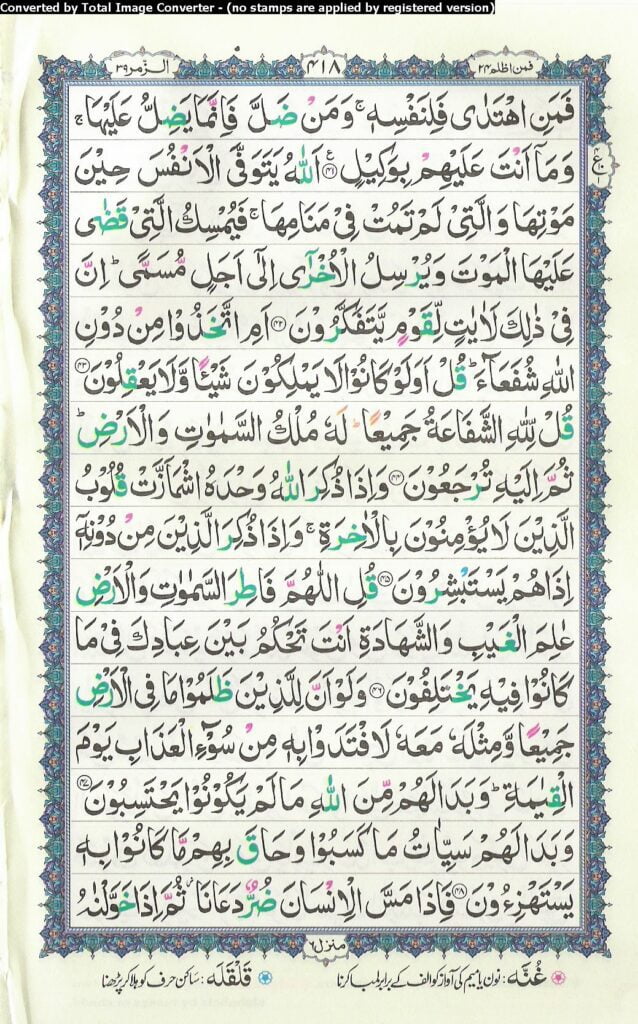 Converted by Total Image Converter - (no stamps are applied by registered version)
فمن اظلم ۲۴
۴۱۸
الزمر ۳۹
فَمَنِ اهْتَدٰى فَلِنَفْسِهٖ ۚ وَمَنْ ضَلَّ فَاِنَّمَا يَضِلُّ عَلَيْهَا ۚ
وَمَاۤ اَنْتَ عَلَيْهِمْ بِوَكِيْلٍ ﴿۴۱﴾ اَللّٰهُ يَتَوَفَّى الْاَنْفُسَ حِيْنَ
مَوْتِهَا وَالَّتِيْ لَمْ تَمُتْ فِيْ مَنَامِهَا ۚ فَيُمْسِكُ الَّتِيْ قَضٰى
عَلَيْهَا الْمَوْتَ وَيُرْسِلُ الْاُخْرٰۤى اِلٰۤى اَجَلٍ مُّسَمًّى ؕ اِنَّ
فِيْ ذٰلِكَ لَاٰيٰتٍ لِّقَوْمٍ يَّتَفَكَّرُوْنَ ﴿۴۲﴾ اَمِ اتَّخَذُوْا مِنْ دُوْنِ
اللّٰهِ شُفَعَآءَ ؕ قُلْ اَوَلَوْ كَانُوْا لَا يَمْلِكُوْنَ شَيْـًٔا وَّلَا يَعْقِلُوْنَ ﴿۴۳﴾
قُلْ لِّلّٰهِ الشَّفَاعَةُ جَمِيْعًا ؕ لَهٗ مُلْكُ السَّمٰوٰتِ وَالْاَرْضِ ؕ
ثُمَّ اِلَيْهِ تُرْجَعُوْنَ ﴿۴۴﴾ وَاِذَا ذُكِرَ اللّٰهُ وَحْدَهُ اشْمَاَزَّتْ قُلُوْبُ
الَّذِيْنَ لَا يُؤْمِنُوْنَ بِالْاٰخِرَةِ ۚ وَاِذَا ذُكِرَ الَّذِيْنَ مِنْ دُوْنِهٖۤ
اِذَا هُمْ يَسْتَبْشِرُوْنَ ﴿۴۵﴾ قُلِ اللّٰهُمَّ فَاطِرَ السَّمٰوٰتِ وَالْاَرْضِ
عٰلِمَ الْغَيْبِ وَالشَّهَادَةِ اَنْتَ تَحْكُمُ بَيْنَ عِبَادِكَ فِيْ مَا
كَانُوْا فِيْهِ يَخْتَلِفُوْنَ ﴿۴۶﴾ وَلَوْ اَنَّ لِلَّذِيْنَ ظَلَمُوْا مَا فِي الْاَرْضِ
جَمِيْعًا وَّمِثْلَهٗ مَعَهٗ لَافْتَدَوْا بِهٖ مِنْ سُوْٓءِ الْعَذَابِ يَوْمَ
الْقِيٰمَةِ ؕ وَبَدَا لَهُمْ مِّنَ اللّٰهِ مَا لَمْ يَكُوْنُوْا يَحْتَسِبُوْنَ ﴿۴۷﴾
وَبَدَا لَهُمْ سَيِّاٰتُ مَا كَسَبُوْا وَحَاقَ بِهِمْ مَّا كَانُوْا بِهٖ
يَسْتَهْزِءُوْنَ ﴿۴۸﴾ فَاِذَا مَسَّ الْاِنْسَانَ ضُرٌّ دَعَانَا ؗ ثُمَّ اِذَا خَوَّلْنٰهُ
ع
منزل ۶
غُنّه: نون یا میم کی آواز کو الف کے برابر لمبا کرنا
قَلْقَلَه: ساکن حرف کو ہلا کر پڑھنا